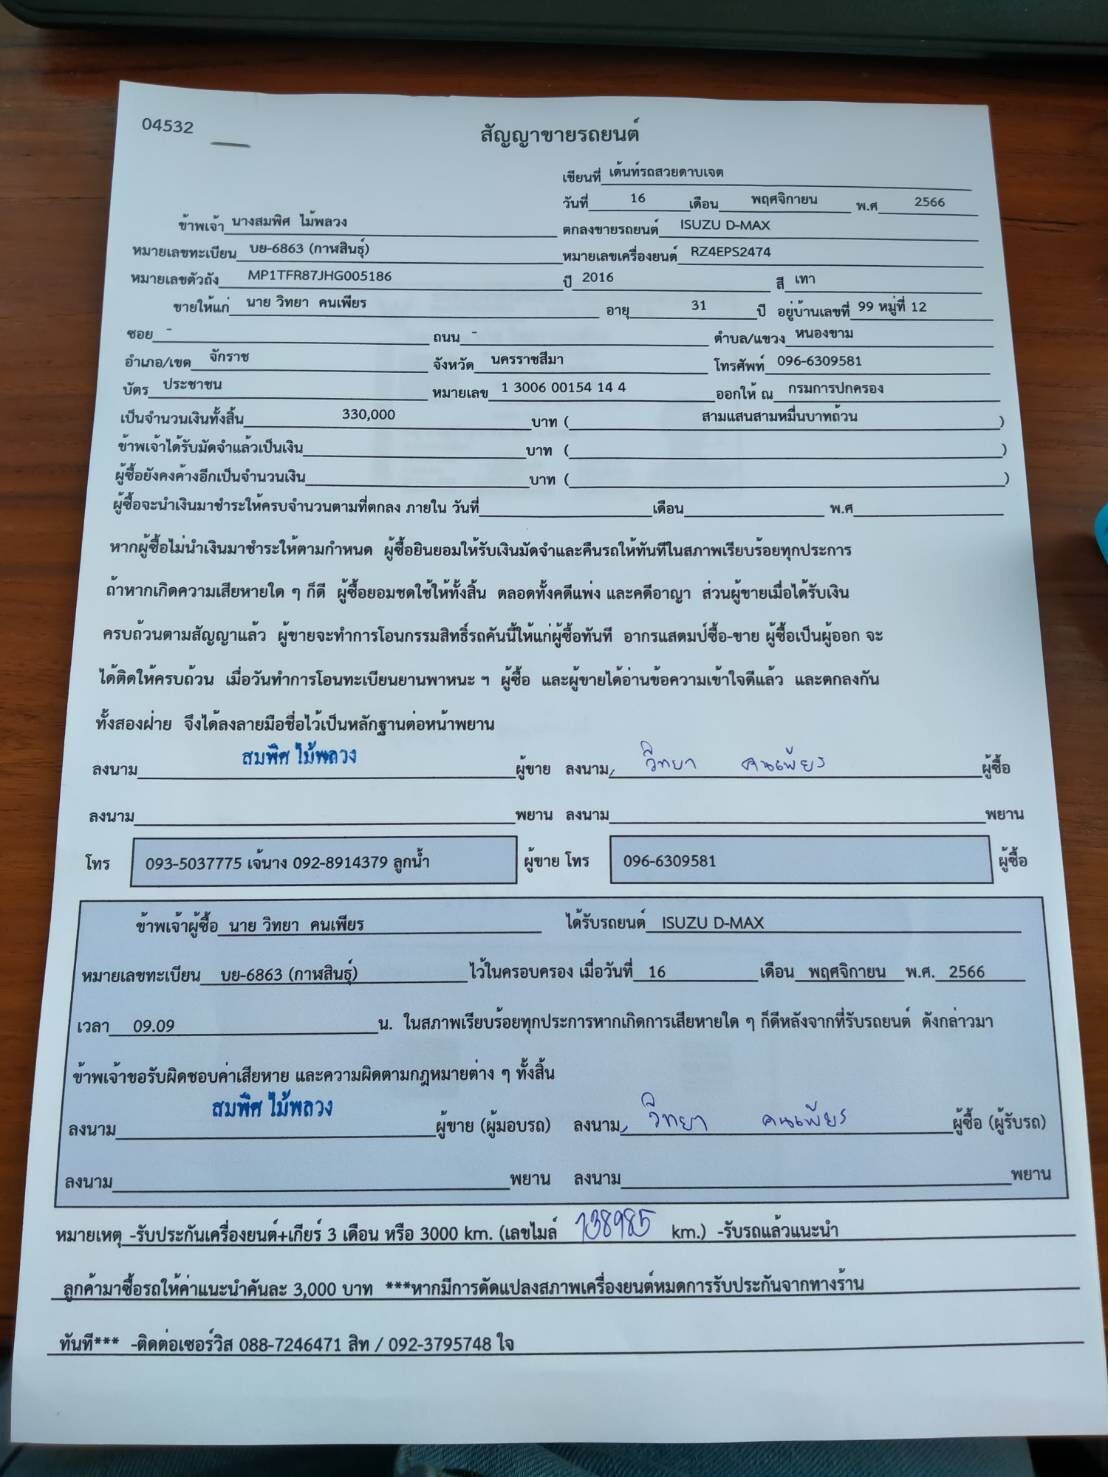 04532
สัญญาขายรถยนต์
เขียนที่ เต้นท์รถสวยดาบเจต
วันที่ 16 เดือน พฤศจิกายน พ.ศ 2566
ข้าพเจ้า นางสมพิศ ไม้พลวง ตกลงขายรถยนต์ ISUZU D-MAX
หมายเลขทะเบียน บย-6863 (กาฬสินธุ์) หมายเลขเครื่องยนต์ RZ4EPS2474
หมายเลขตัวถัง MP1TFR87JHG005186 ปี 2016 สี เทา
ขายให้แก่ นาย วิทยา คนเพียร อายุ 31 ปี อยู่บ้านเลขที่ 99 หมู่ที่ 12
ซอย - ถนน - ตำบล/แขวง หนองขาม
อำเภอ/เขต จักราช จังหวัด นครราชสีมา โทรศัพท์ 096-6309581
บัตร ประชาชน หมายเลข 1 3006 00154 14 4 ออกให้ ณ กรมการปกครอง
เป็นจำนวนเงินทั้งสิ้น 330,000 บาท ( สามแสนสามหมื่นบาทถ้วน )
ข้าพเจ้าได้รับมัดจำแล้วเป็นเงิน บาท ( )
ผู้ซื้อยังคงค้างอีกเป็นจำนวนเงิน บาท ( )
ผู้ซื้อจะนำเงินมาชำระให้ครบจำนวนตามที่ตกลง ภายใน วันที่ เดือน พ.ศ
หากผู้ซื้อไม่นำเงินมาชำระให้ตามกำหนด ผู้ซื้อยินยอมให้รับเงินมัดจำและคืนรถให้ทันทีในสภาพเรียบร้อยทุกประการ
ถ้าหากเกิดความเสียหายใด ๆ ก็ดี ผู้ซื้อยอมชดใช้ให้ทั้งสิ้น ตลอดทั้งคดีแพ่ง และคดีอาญา ส่วนผู้ขายเมื่อได้รับเงิน
ครบถ้วนตามสัญญาแล้ว ผู้ขายจะทำการโอนกรรมสิทธิ์รถคันนี้ให้แก่ผู้ซื้อทันที อากรแสตมป์ซื้อ-ขาย ผู้ซื้อเป็นผู้ออก จะ
ได้ติดให้ครบถ้วน เมื่อวันทำการโอนทะเบียนยานพาหนะ ฯ ผู้ซื้อ และผู้ขายได้อ่านข้อความเข้าใจดีแล้ว และตกลงกัน
ทั้งสองฝ่าย จึงได้ลงลายมือชื่อไว้เป็นหลักฐานต่อหน้าพยาน
ลงนาม สมพิศ ไม้พลวง ผู้ขาย ลงนาม วิทยา คนเพียร ผู้ซื้อ
ลงนาม พยาน ลงนาม พยาน
โทร 093-5037775 เจ้นาง 092-8914379 ลูกน้ำ ผู้ขาย โทร 096-6309581 ผู้ซื้อ
ข้าพเจ้าผู้ซื้อ นาย วิทยา คนเพียร ได้รับรถยนต์ ISUZU D-MAX
หมายเลขทะเบียน บย-6863 (กาฬสินธุ์) ไว้ในครอบครอง เมื่อวันที่ 16 เดือน พฤศจิกายน พ.ศ. 2566
เวลา 09.09 น. ในสภาพเรียบร้อยทุกประการหากเกิดการเสียหายใด ๆ ก็ดีหลังจากที่รับรถยนต์ ดังกล่าวมา
ข้าพเจ้าขอรับผิดชอบค่าเสียหาย และความผิดตามกฎหมายต่าง ๆ ทั้งสิ้น
ลงนาม สมพิศ ไม้พลวง ผู้ขาย (ผู้มอบรถ) ลงนาม วิทยา คนเพียร ผู้ซื้อ (ผู้รับรถ)
ลงนาม พยาน ลงนาม พยาน
หมายเหตุ -รับประกันเครื่องยนต์+เกียร์ 3 เดือน หรือ 3000 km. (เลขไมล์ 138985 km.) -รับรถแล้วแนะนำ
ลูกค้ามาซื้อรถให้ค่าแนะนำคันละ 3,000 บาท ***หากมีการดัดแปลงสภาพเครื่องยนต์หมดการรับประกันจากทางร้าน
ทันที*** -ติดต่อเซอร์วิส 088-7246471 สิท / 092-3795748 ใจ